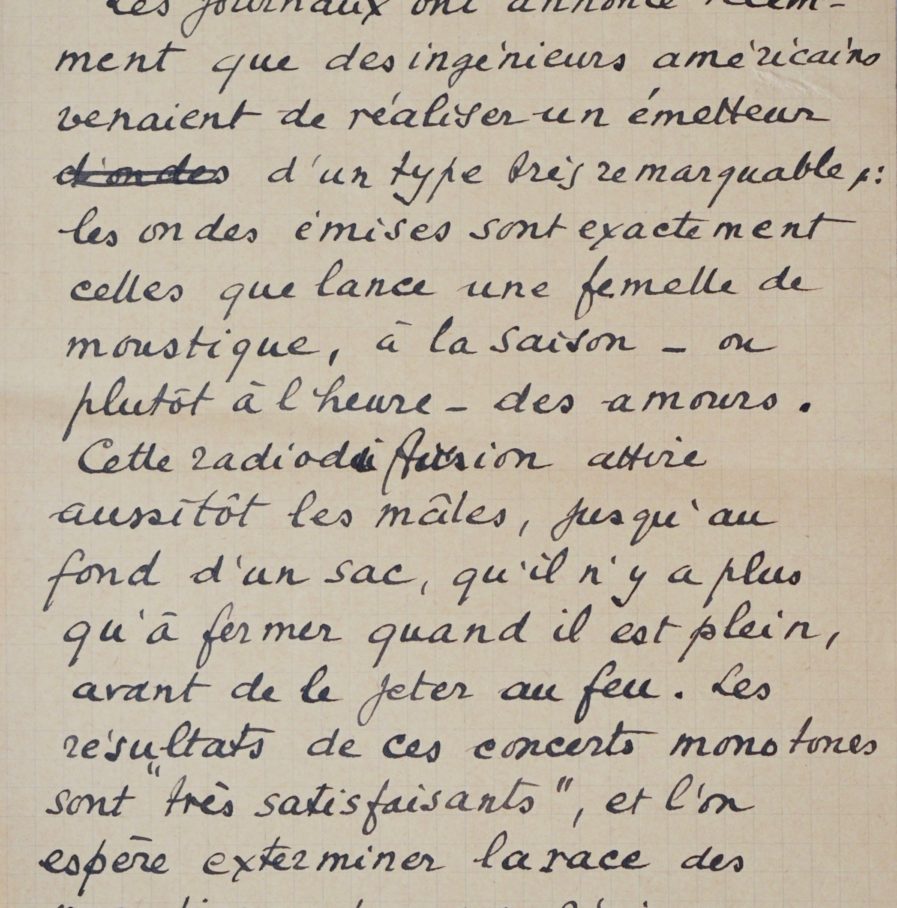 Les journaux ont annoncé récem-
ment que des ingénieurs américains
venaient de réaliser un émetteur
d'ondes d'un type très remarquable :
les ondes émises sont exactement
celles que lance une femelle de
moustique, à la saison – ou
plutôt à l'heure – des amours.
Cette radiodiffusion attire
aussitôt les mâles, jusqu'au
fond d'un sac, qu'il n'y a plus
qu'à fermer quand il est plein,
avant de le jeter au feu. Les
résultats de ces concerts monotones
sont "très satisfaisants", et l'on
espère exterminer la race des